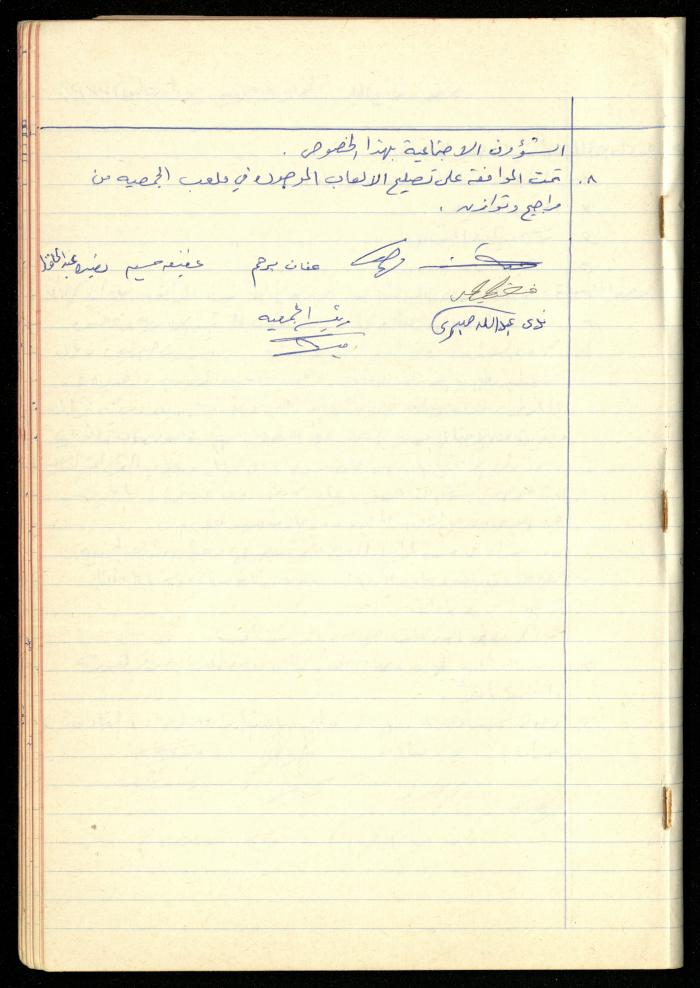 الشؤون الاجتماعية بهذا الخصوص .
٨. تمت الموافقة على تصليح الالعاب الموجوده في ملعب الجمعيه من
مراجيح وتوازن .
عفاف مرحم عفيفه مسيم نضيره عبد الحافظ
ندى عبدالله صبري
رئيسة الجمعيه